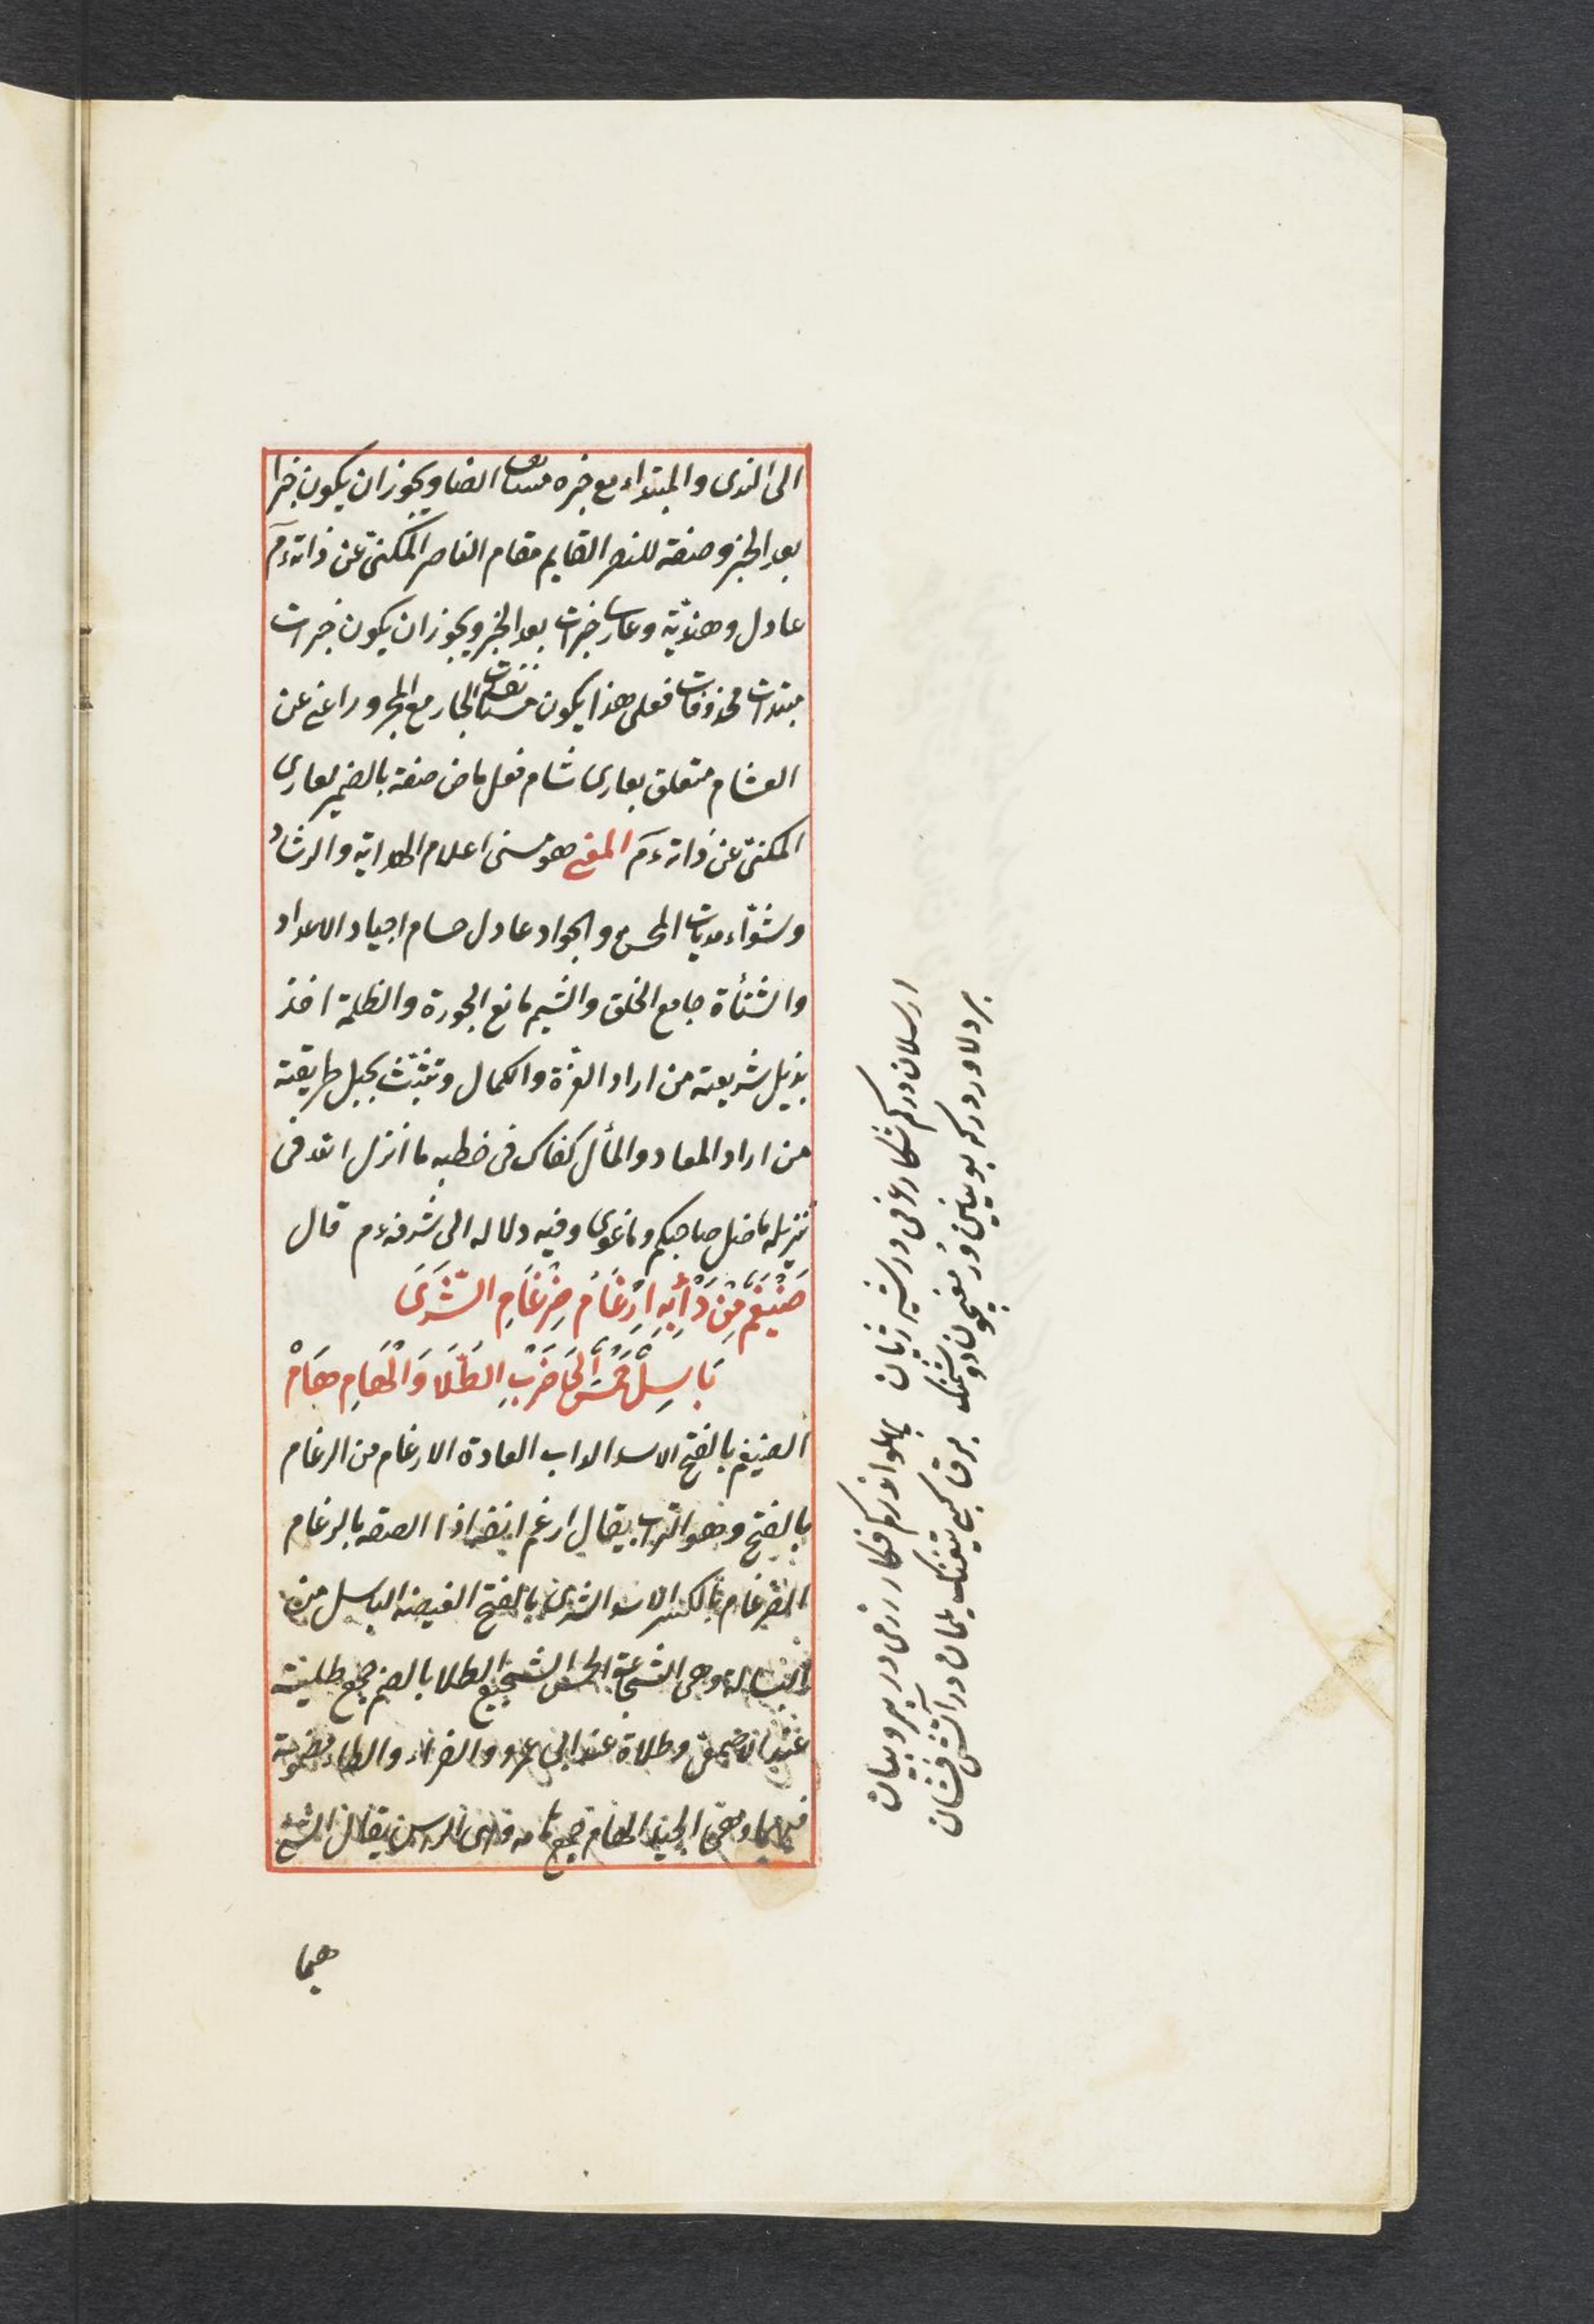 الى الندى والمبتداء مع خبره مستانف ايضا ويجوز ان يكون خبرا
بعد الخبر وصفة للنصر القايم مقام الناصر المكنىّ عن ذاته ءم
عادل وهنديّة وعار خبرات بعد الخبر ويجوز ان يكون خبرات
مبتدات محذوفات فعلى هذا يكون مستانفات الجار مع المجرور اعنى عن
الغشام متعلق بعارى شام فعل ماض صفة بالضمير لعارى
المكنىّ عن ذاته ءم المعنى هو مسنى اعلام الهداية والرشاد
وشنواء مديات الحسن والجواد عادل حسام اجياد الاعداد
والشنأة جامع الخلق والشيم مانع الجورة والظلمة اخذ
بذيل شريعته من اراد العزة والكمال وتشبّث بحبل طريقته
من اراد المعاد والمأل كفاك فى خطبه ما انزل الله فى
تنزيله ماضل صاحبكم وماغوى وفيه دلاله الى شرفه ءم قال
ضَيْغَمٌ مِنْ دَأْبِهِ اِرْغَامُ ضِرْغَامِ الشَّرَى
بَاسِلٌ حَمْسُ الحَا ضَرْبِ الطُّلَا وَالْهَامِ هَامْ
الضيغم بالفتح الاسد الداب العادة الارغام من الرغام
بالفتح وهو التراب يقال ارغم انفه اذا الصقه بالرغام
الضرغام بالكسر الاسد الشرى بالفتح الغيضه الباسل من
البسالة وهى الشجاعة الحمس الشجيع الطلا بالضم جمع طلية
عند الاصمعى وطلاة عند ابى عمرو والفراء والطاء مضمومة
فيهما وهى الجيد الهام جمع هامه وهى الراس يقال الشئ
هيما
ارسلان دركم شكار غرمى در شير ژيان پهلواندركم فكار رزمى در ببر و بيان
بر دلاور دركه بويين در مغيجون دشمنك برق كبى تيغنك يمان در آتش فشان